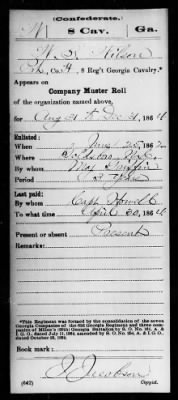 (Confederate.)
W 8 Cav. Ga.
W. Wilson
Co. , 8 Reg't Georgia Cavalry.*
Appears on
Company Muster Roll
of the organization named above,
for Aug 31 to Dec 31, 186
Enlisted:
When 186
Where Goldsboro N.C.
By whom
Period 3 Yrs
Last paid:
By whom Capt Howell
To what time April 30, 186
Present or absent Present
Remarks:
*This Regiment was formed by the consolidation of the seven Georgia Companies of the 62d Regiment and three companies of Millen's (20th) Georgia Battalion by S. O. No. 161, A. & I. G. O., dated July 11, 1864; amended by S. O. No. 254, A. & I. G. O., dated October 26, 1864.
Book mark:
J. Jacobson
(642) Copyist.